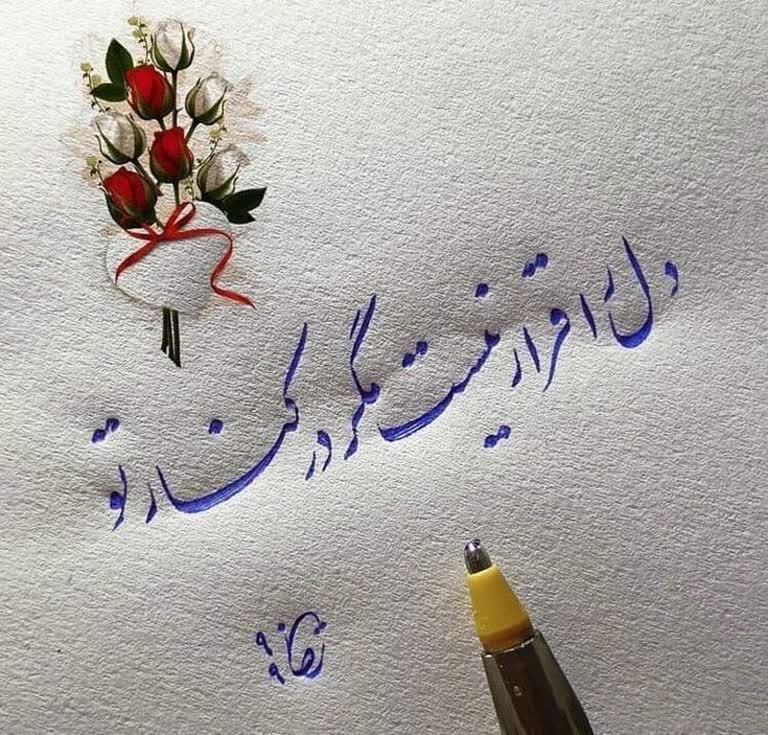 دل را قرار نیست مگر در کنار تو